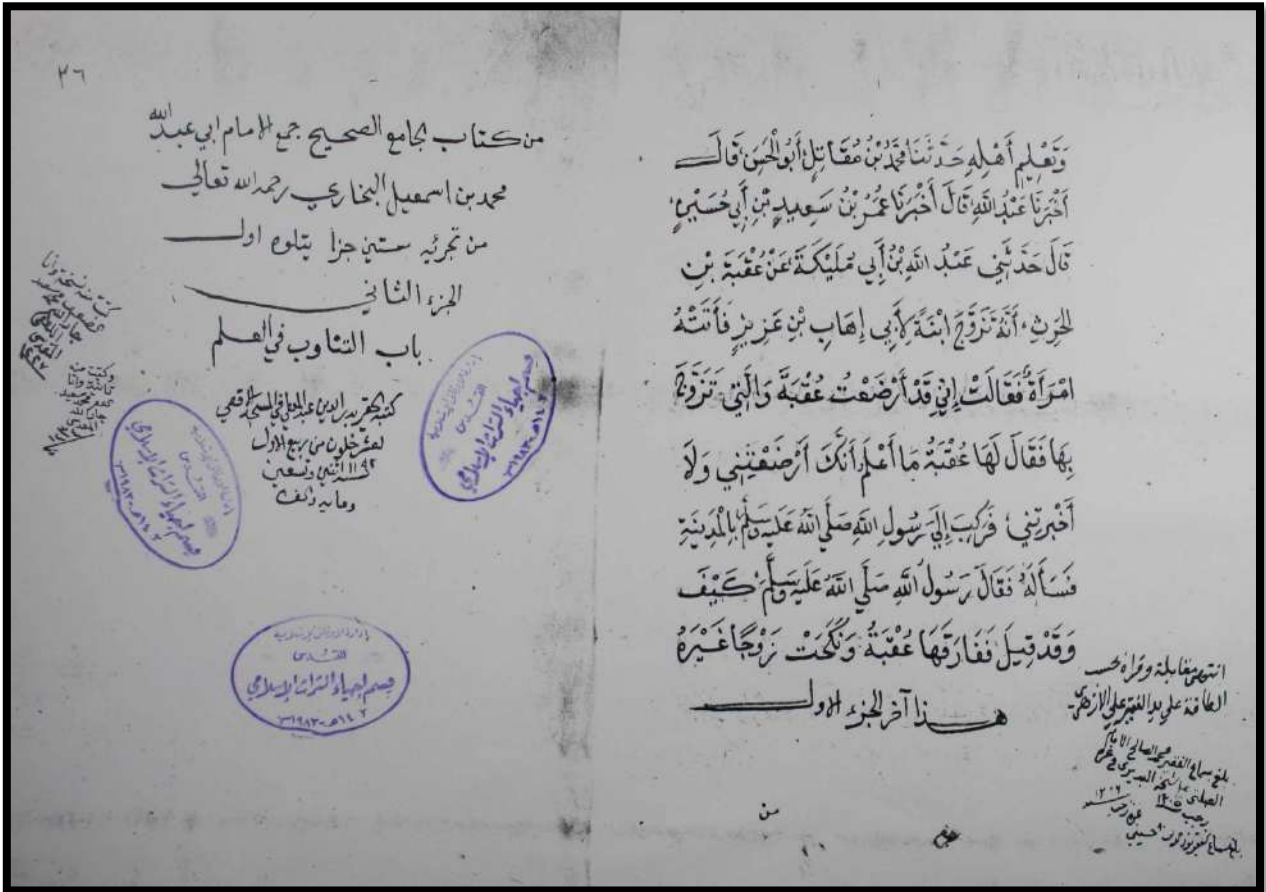 وَتَعْلِيمِ أَهْلِهِ حَدَّثَنَا مُحَمَّدُ بْنُ مُقَاتِلٍ أَبُو الْحَسَنِ قَالَ
أَخْبَرَنَا عَبْدُ اللهِ قَالَ أَخْبَرَنَا عُمَرُ بْنُ سَعِيدِ بْنِ أَبِي حُسَيْنٍ
قَالَ حَدَّثَنِي عَبْدُ اللهِ بْنُ أَبِي مُلَيْكَةَ عَنْ عُقْبَةَ بْنِ
الْحَرِثِ أَنَّهُ تَزَوَّجَ ابْنَةً لِأَبِي إِهَابِ بْنِ عَزِيزٍ فَأَتَتْهُ
امْرَأَةٌ فَقَالَتْ إِنِّي قَدْ أَرْضَعْتُ عُقْبَةَ وَالَّتِي تَزَوَّجَ
بِهَا فَقَالَ لَهَا عُقْبَةُ مَا أَعْلَمُ أَنَّكِ أَرْضَعْتِنِي وَلَا
أَخْبَرْتِنِي فَرَكِبَ إِلَى رَسُولِ اللهِ صَلَّى اللهُ عَلَيْهِ وَسَلَّمَ بِالْمَدِينَةِ
فَسَأَلَهُ فَقَالَ رَسُولُ اللهِ صَلَّى اللهُ عَلَيْهِ وَسَلَّمَ كَيْفَ
وَقَدْ قِيلَ فَفَارَقَهَا عُقْبَةُ وَنَكَحَتْ زَوْجًا غَيْرَهُ
هذا آخر الجزء الاول
من
انتهى مقابلة وقراة بحسب
الطاقة على يد الفقير علي الازهري
بلغ سماع الفقير محمد الصالح الامام
رجب ١٢٠٥
٣٦
من كتاب الجامع الصحيح جمع الامام ابي عبد الله
محمد بن اسمعيل البخاري رحمه الله تعالى
من تجزئه ستين جزأ يتلوه اول
الجزء الثاني
باب التناوب في العلم
كتبه الحقير بدر الدين
لعشر خلون من ربيع الاول
سنة ١١٩٢ اثنتي وتسعين
ومايه والف
إدارة الأوقاف الإسلامية
القدس
قسم إحياء التراث الإسلامي
١٤٠٢هـ - ١٩٨٢م
إدارة الأوقاف الإسلامية
القدس
قسم إحياء التراث الإسلامي
١٤٠٢هـ - ١٩٨٢م
إدارة الأوقاف الإسلامية
القدس
قسم إحياء التراث الإسلامي
١٤٠٢هـ - ١٩٨٢م